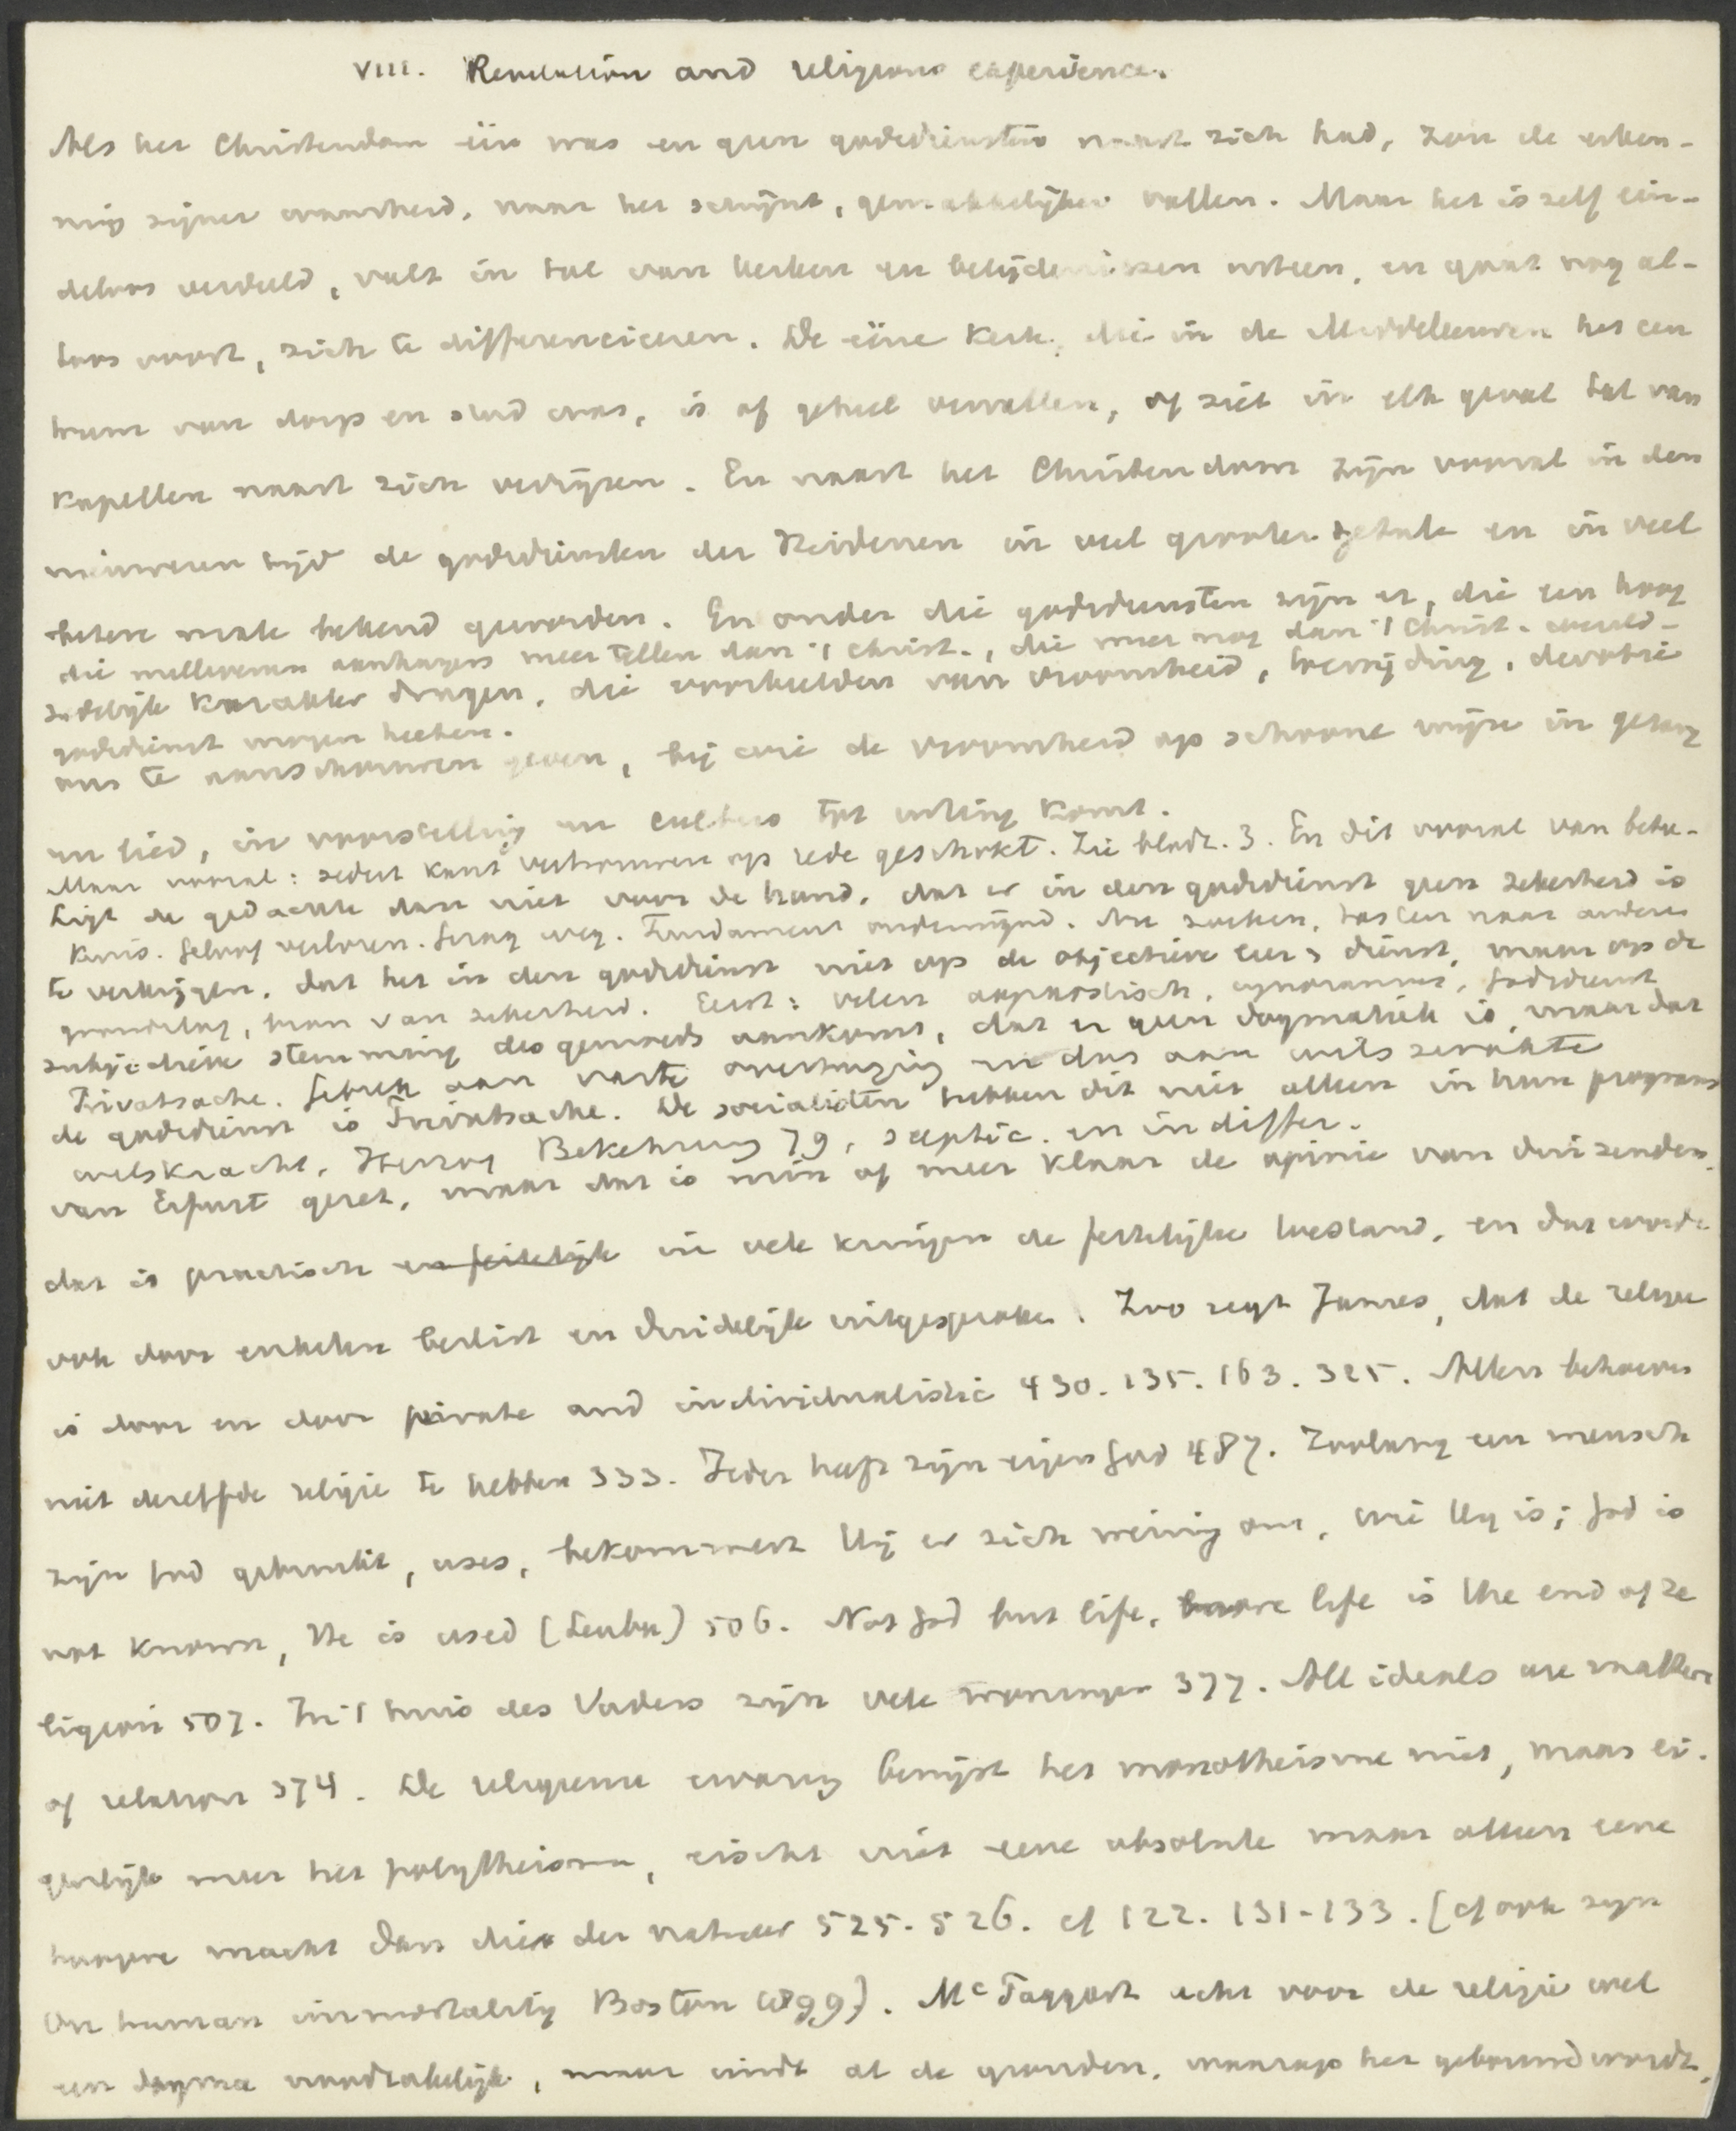 VIII. Revelation and religious experience.
Als het Christendom één was en geen godsdiensten naast zich had, zou de erken-
ning zijner waarheid, naar het schijnt, gemakkelijker vallen. Maar het is zelf ein-
deloos verdeeld, valt in tal van kerken en belijdenissen uiteen, en gaat nog al-
toos voort, zich te differenciceren. De eéne Kerk, die in de Middeleeuwen het cen
trum van dorp en stad was, is of geheel vervallen, of ziet in elk geval tal van
Kapellen naast zich verrijzen. En naast het Christendom zijn vooral in den
nieuweren tijd de godsdiensten der Heidenen in veel grooter getale en in veel
betere mate bekend geworden. En onder die godsdiensten zijn er, die een hoog
die millioenen aanhangers meer tellen dan 't Christ., die meer nog dan 't Christ. wereld-
zedelijk karakter dragen, die voorbeelden van vroomheid, toewijding, devotie
godsdienst mogen heeten.
ons te aanschouwen geven, bij wie de vroomheid op schoone wijze in gezang
en lied, in voorstelling en cultus tot uiting komt.
Maar vooral: sedert Kant vertrouwen op rede geschokt. Zie bladz. 3. En dit vooral van bete-
Ligt de gedachte dan niet voor de hand, dat er in den godsdienst geen zekerheid is
kenis. Geloof verloren. Gezag weg. Fundament ondermijnd. Nu zoeken, tasten naar andere
te verkrijgen, dat het in den godsdienst niet op de objectieve eeredienst, maar op de
grondslag, bron van zekerheid. Eerst: velen agnostisch, ignoramus, Godsdienst
subjectieve stemming des gemoeds aankomt, dat er geen dogmatiek is, maar dat
Privatsache. Gebrek aan vaste overtuiging en dus aan wilszwakte
de godsdienst is Privatsache. De socialisten hebben dit niet alleen in hun program
wilskracht. Herzog Bekehrung 79, sceptic. en indiffer.
van Erfurt gezet, maar dat is min of meer klaar de opinie van duizenden,
dat is practisch en feitelijk in vele kringen de feitelijke toestand, en dat wordt
ook door enkelen beslist en duidelijk uitgesproken. Zoo zegt James, dat de religie
is door en door private and individualistic 430. 135. 163. 325. Allen behoeven
niet dezelfde religie te hebben 333. Ieder heeft zijn eigen God 487. Zoolang een mensch
zijn God gebruikt, uses, bekommert hij er zich weinig om, wie Hij is; God is
not known, He is used (Leuba) 506. Not God but life, more life is the end of re
ligion 507. In 't huis des Vaders zijn vele woningen 377. All ideals are matters
of relation 374. De religieuse ervaring bewijst het monotheisme niet, maar ei-
genlijk meer het polytheisme, eischt niet eene absolute maar alleen eene
hoogere macht dan die der natuur 525. 526. cf 122. 131-133. (cf ook zijn
On human immortality Boston 1899). McTaggart acht voor de religie wel
een dogma noodzakelijk, maar vindt al de gronden, waarop het gebouwd wordt,